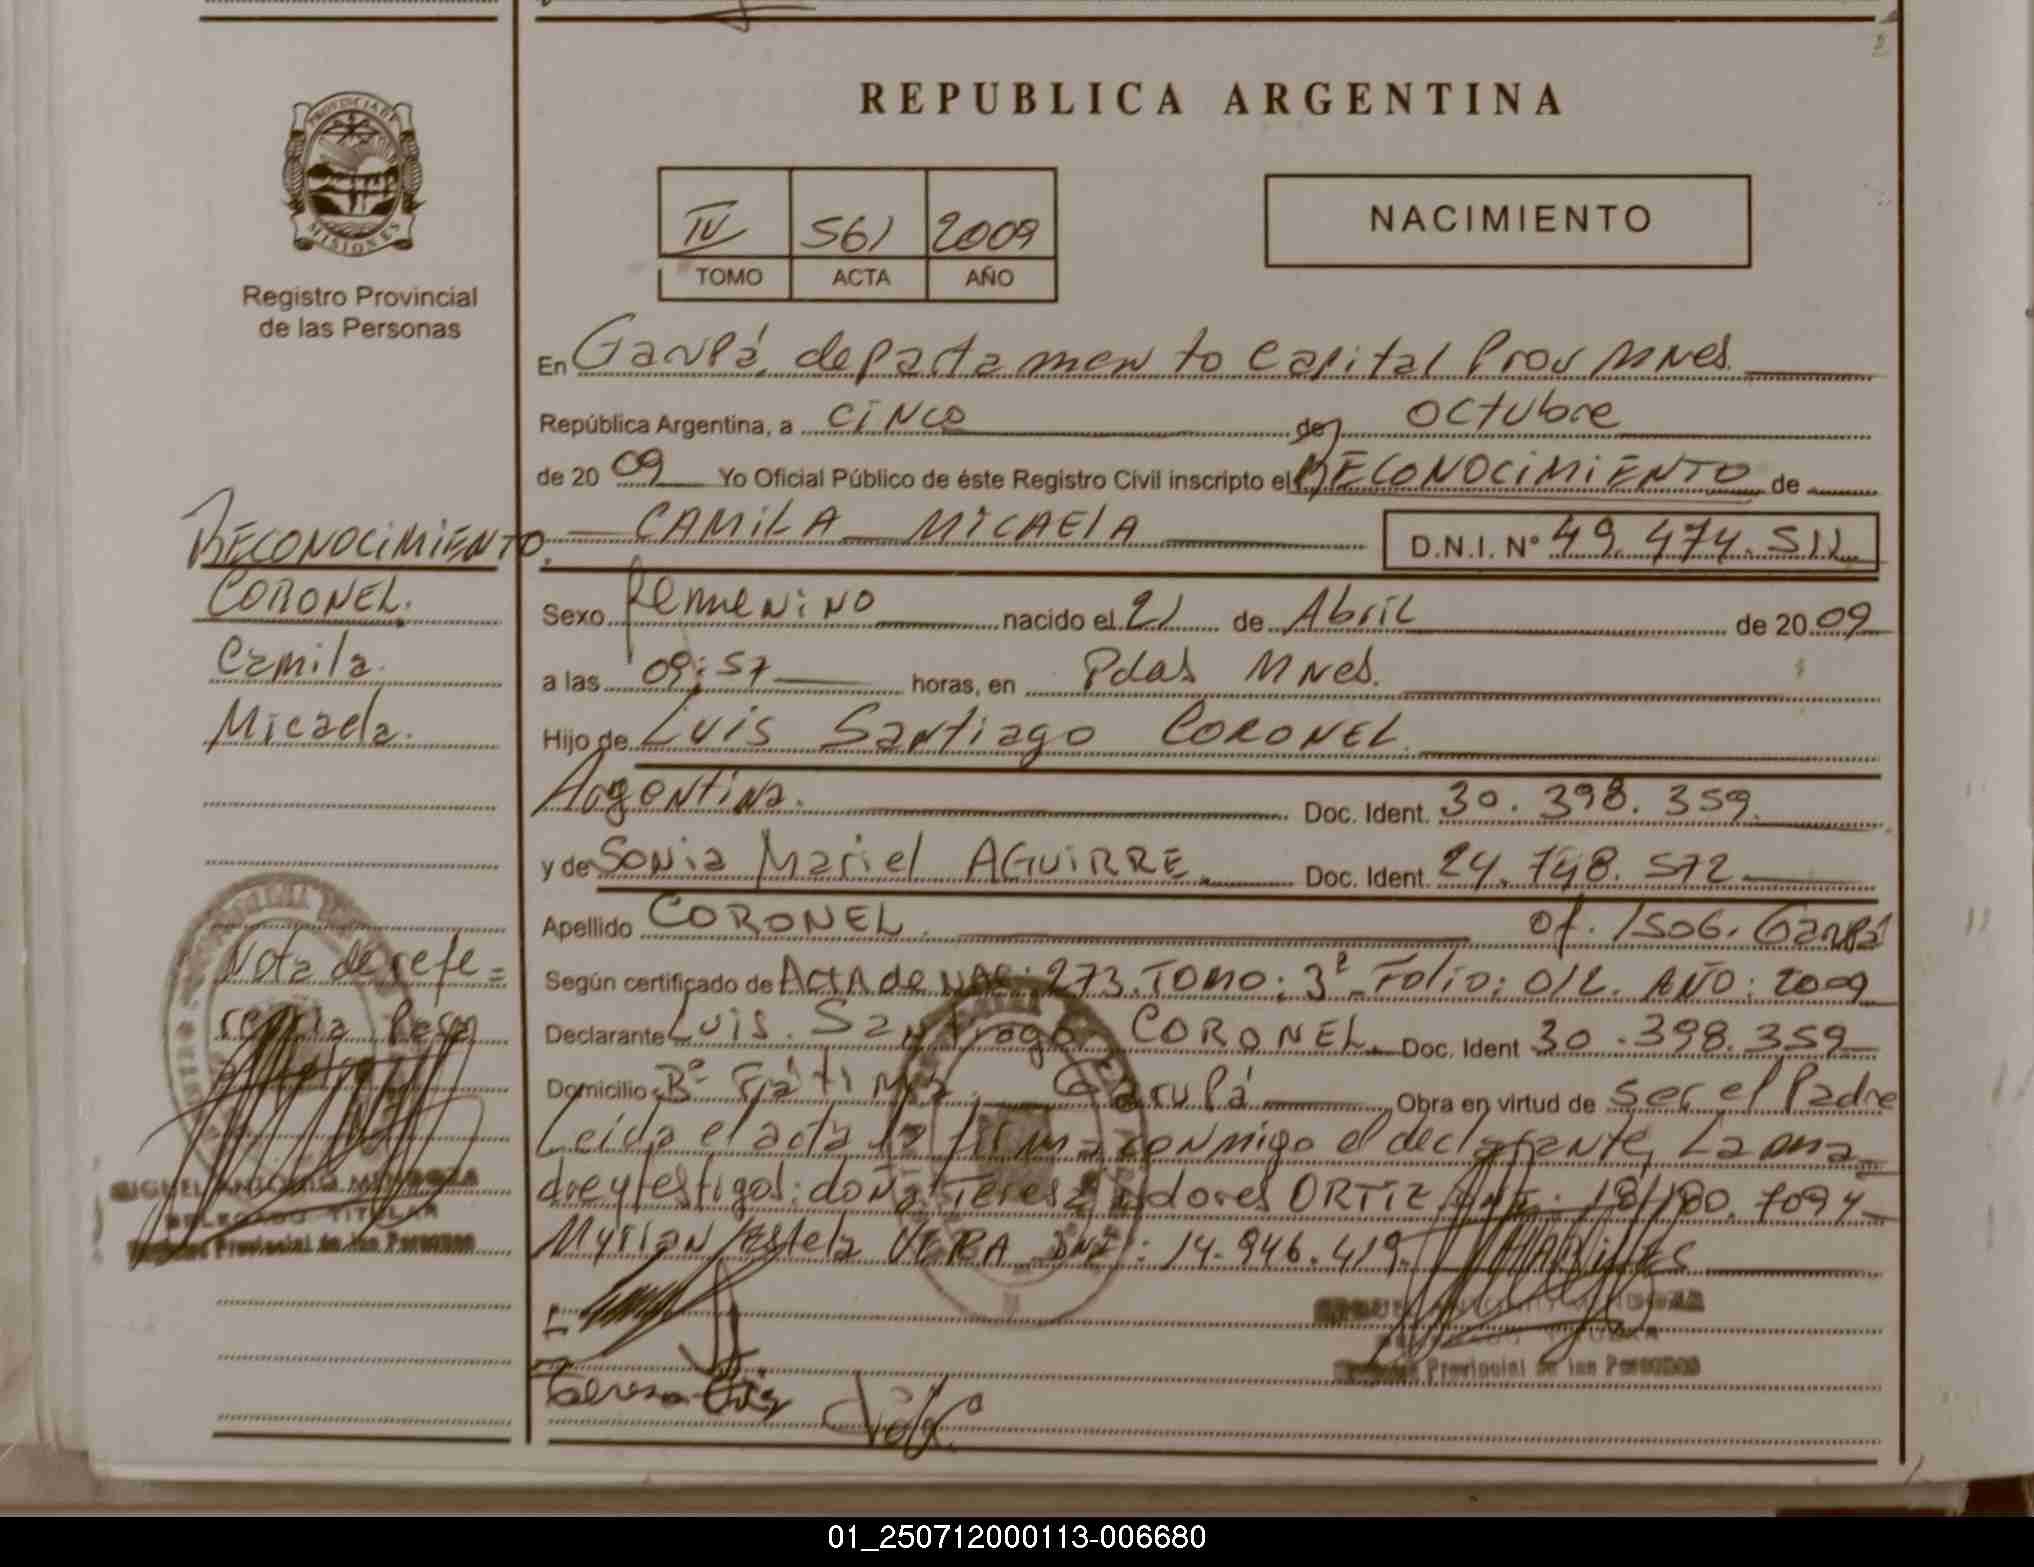 REPUBLICA ARGENTINA
PROVINCIA DE
MISIONES
Registro Provincial
de las Personas
IV 561 2009
TOMO ACTA AÑO
NACIMIENTO
En Garupá, departamento Capital Prov Mnes.
República Argentina, a cinco de octubre
de 20 09 Yo Oficial Público de éste Registro Civil inscripto el RECONOCIMIENTO de
CAMILA MICAELA D.N.I. Nº 49.474.511
RECONOCIMIENTO.
CORONEL.
Camila.
Micaela.
Sexo femenino nacido el 21 de Abril de 20 09
a las 09:57 horas, en Pdas Mnes.
Hijo de Luis Santiago CORONEL.
Argentina. Doc. Ident. 30.398.359.
y de Sonia Mariel AGUIRRE. Doc. Ident. 24.748.572
Apellido CORONEL. of. 1506. Garupá
Según certificado de Acta de NAC: 273. TOMO: 3º Folio: 012. AÑO: 2009
Declarante Luis. Santiago CORONEL. Doc. Ident 30.398.359
Domicilio Bº Fátima. Garupá Obra en virtud de ser el Padre
Leída el acta la firma conmigo el declarante, La ma
dre y testigos: doña Teresa Dolores ORTIZ
Myrian Estela VERA DNI: 14.946.419.
Nota de refe=
rencia
MIGUEL ANTONIO MENDOZA
DELEGADO TITULAR
Registro Provincial de las Personas
MIGUEL ANTONIO MENDOZA
DELEGADO TITULAR
Registro Provincial de las Personas
Teresa Ortiz
01_250712000113-006680